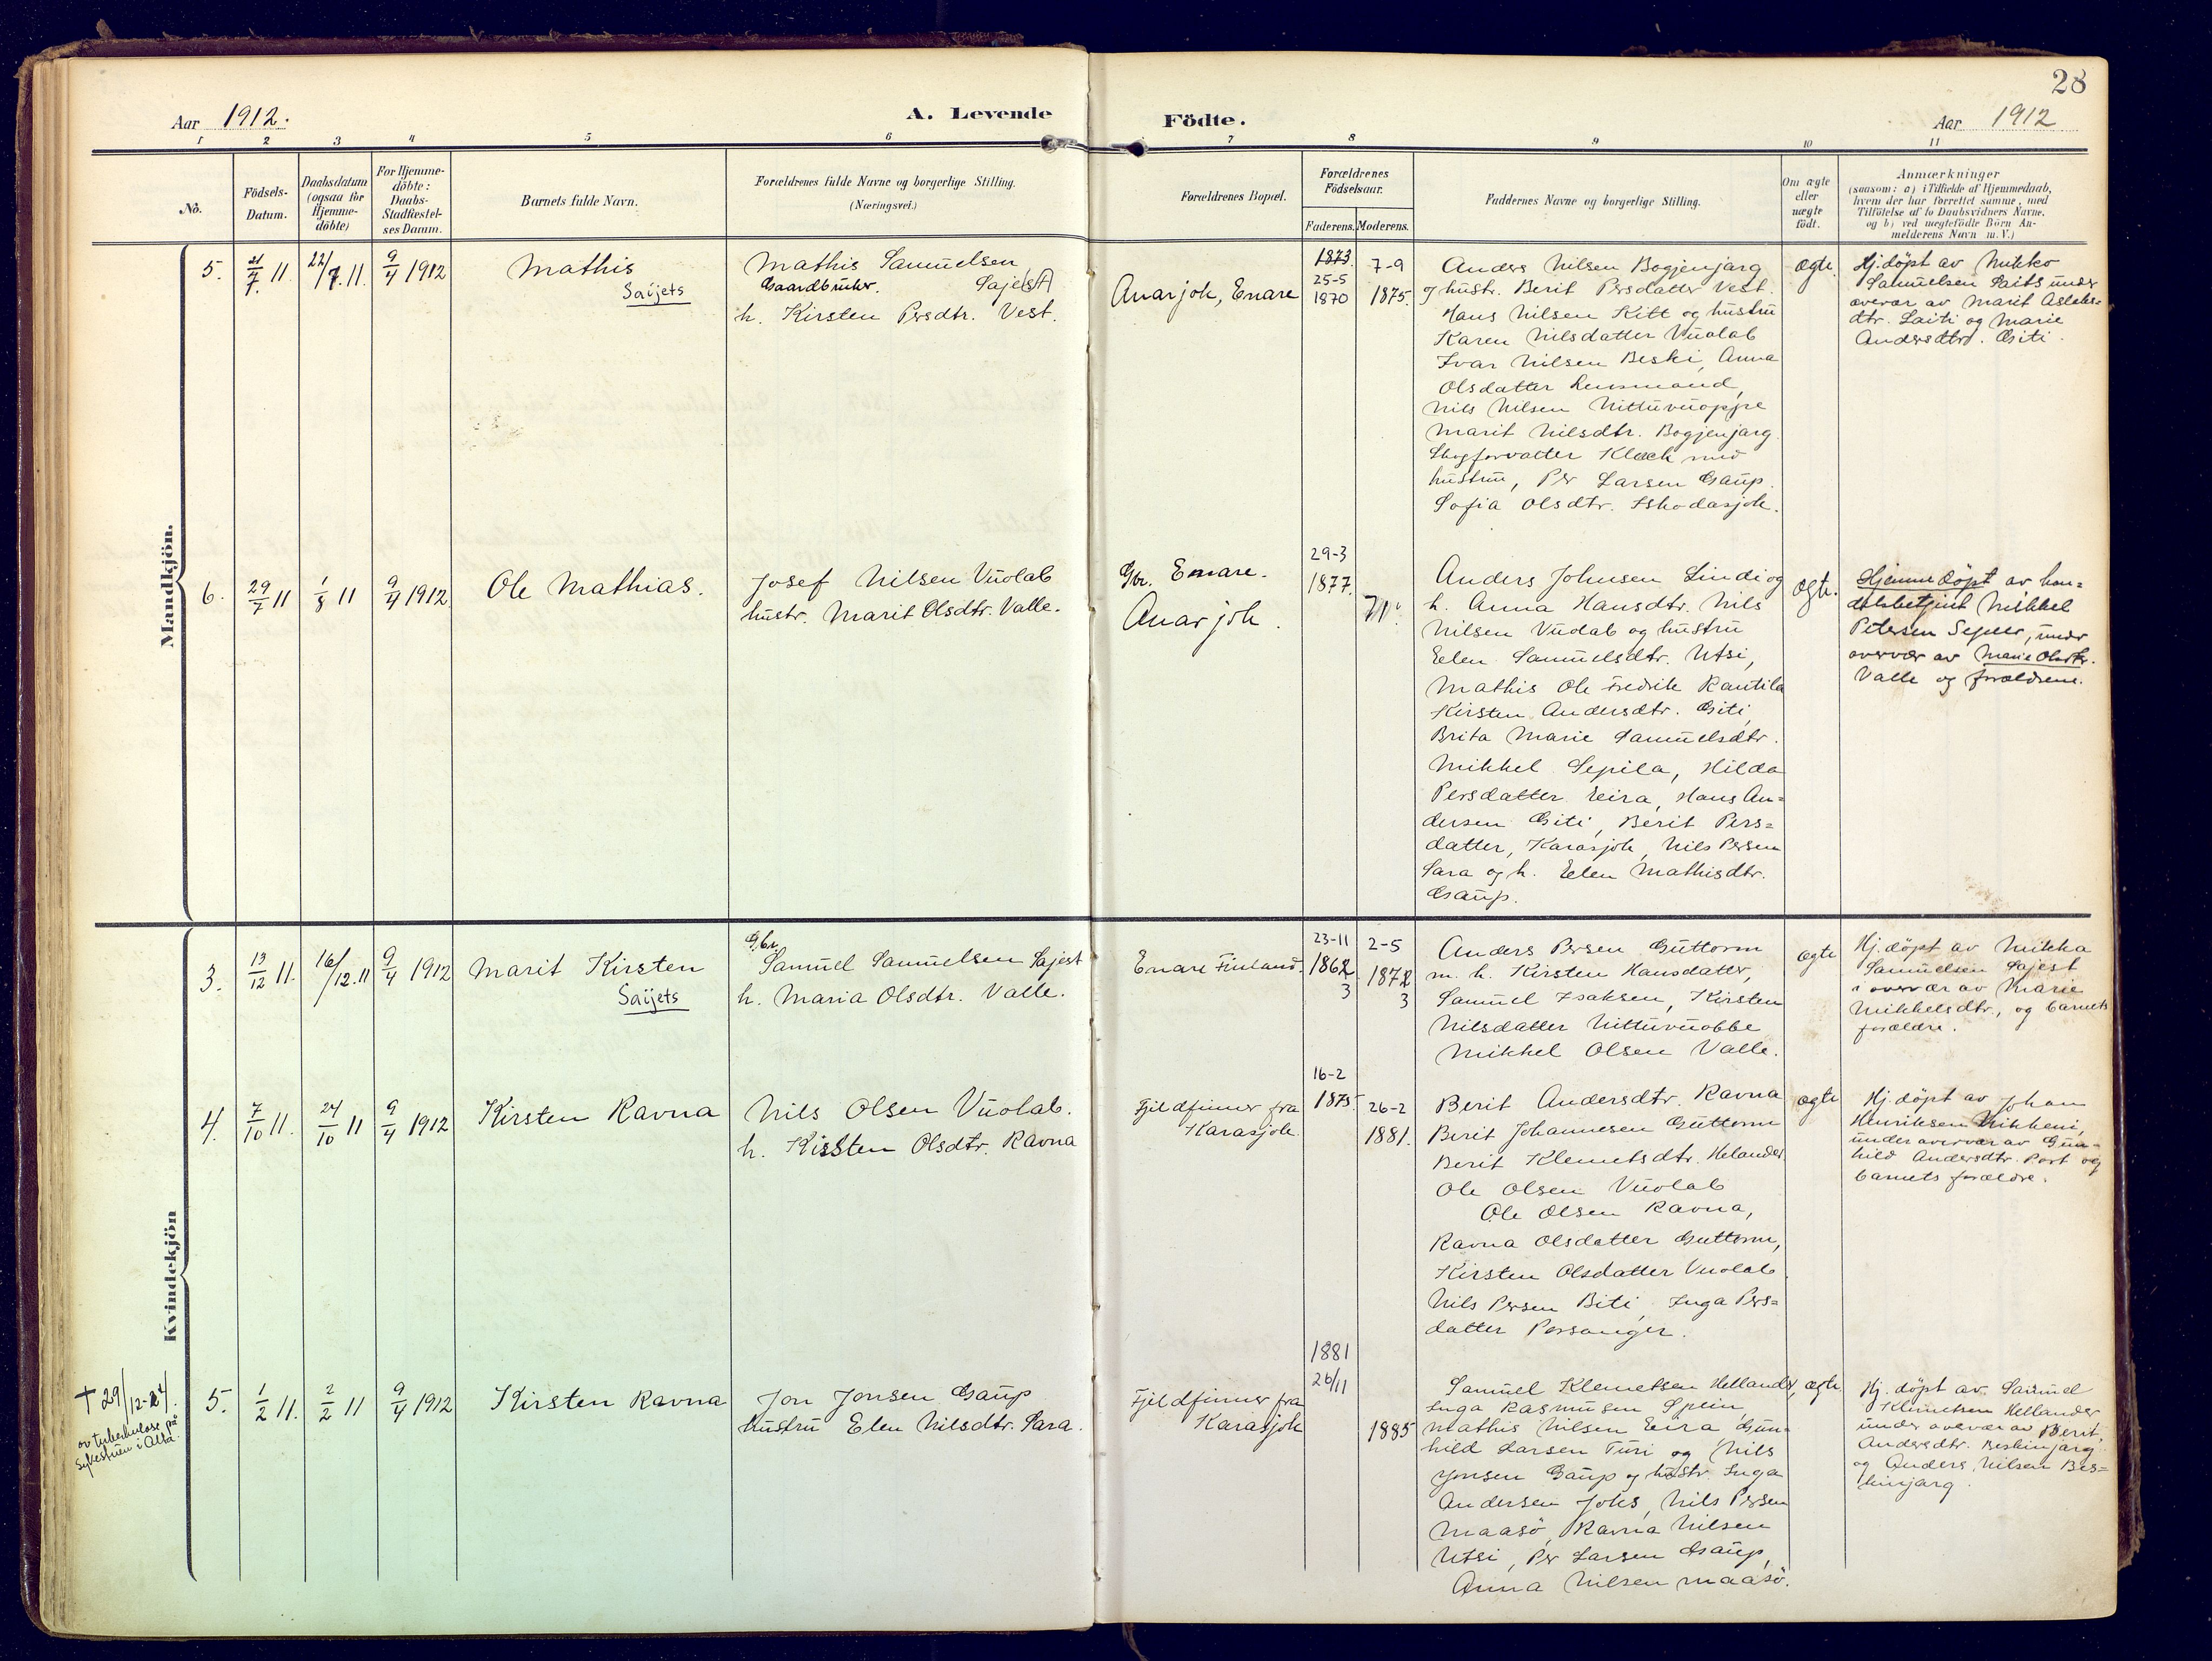 28
Aar 1912.
A. Levende
Födte.
Aar 1912
1 2 3 4 5 6 7 8 9 10 11
No.
Födsels-
Datum.
Daabsdatum
(ogsaa for
Hjemme-
döbte)
For Hjemme-
döbte:
Daabs-
Stadfæstel-
ses Datum.
Barnets fulde Navn.
Forældrenes fulde Navne og borgerlige Stilling.
(Næringsvei.)
Forældrenes Bopæl.
Forældrenes
Födselsaar.
Faderens. Moderens.
Faddernes Navne og borgerlige Stilling.
Om ægte
eller
uægte
födt.
Anmærkninger
(saasom: a) i Tilfælde af Hjemmedaab,
hvem der har forrettet samme, med
Tilföielse af to Daabsvidners Navne.
og b) ved uægtefödte Börn An-
melderens Navn m. V.)
Mandkjön.
5.
21/7. 11.
22/7. 11.
9/4 1912
Mathis
Saijets
Mathis Samuelsen
Gaardbruker. Saje(st)
h. Kirsten Persdtr. Vest.
Anarjok, Enare
1873.
25-5
1870
7-9
1875.
Anders Nilsen Bogjenjarg
og hustr. Berit Persdatter Vest.
Hans Nilsen Kitt og hustru
Karen Nilsdatter Vuolab
Ivar Nilsen Beski, Anna
Olsdatter Lensmand,
Nils Nilsen Nittuvuoppe
Marit Nilsdtr. Bogjenjarg.
Skogforvalter Klack med
hustru, Per Larsen Gaup.
Sofia Olsdtr. Iskodasjok.
Ægte.
Hj. döpt av Mikko
Samuelsen Saits under
overvær av Marit Aslaks-
dtr. Laiti og Marie
Andersdtr. Giti.
6.
29/7 11
1/8 11
9/4 1912.
Ole Mathias.
Josef Nilsen Vuolab
hustr. Marit Olsdtr. Valle.
Gbr. Enare.
Anarjok.
29-3
1877.
Anders Johnsen Lindi og
h. Anna Hansdtr. Nils
Nilsen Vuolab og hustru
Elen Samuelsdtr. Utsi,
Mathis Ole Fredrik Rantila
Kirsten Andersdtr. Giti,
Brita Marie Samuelsdtr.
Mikkel Sepila, Hilda
Persdatter Eira, Hans An-
dersen Giti, Berit Pers-
datter, Karasjok, Nils Persen
Sara og h. Elen Mathisdtr.
Gaup.
Ægte.
Hjemmedöpt av han-
delsbetjent Mikkel
Petersen Sepler, under
overvær av Marie Olsdtr.
Valle og forældrene.
Kvindekjön
3.
13/12 11.
16/12. 11
9/4 1912
Marit Kirsten
Saijets
Gbr.
Samuel Samuelsen Sajest
h. Maria Olsdtr. Valle.
Enare Finland.
23-11
1862
3
2-5
1872
3
Anders Persen Guttorm
m. h. Kirsten Hansdatter,
Samuel Isaksen, Kirsten
Nilsdatter Nittuvuobbe
Mikkel Olsen Valle.
ægte
Hj. döpt av Mikka
Samuelsen Sajest
i overvær av Marie
Mikkelsdtr., og barnets
forældre.
4.
7/10 11.
24/10 11
9/4 1912
Kirsten Ravna
Nils Olsen Vuolab.
h. Kirsten Olsdtr. Ravna
Fjeldfinner fra
Karasjok.
16-2
1875.
26-2
1881.
Berit Andersdtr. Ravna
Berit Johannesen Guttorm
Berit Klemetsdtr. Helander.
Ole Olsen Vuolab
Ole Olsen Ravna,
Ravna Olsdatter Guttorm,
Kirsten Olsdatter Vuolab.
Nils Persen Biti, Inga Pers-
datter Porsanger.
ægte
Hj. döpt av Johan
Henriksen Nikkeni,
under overvær av Gun-
hild Andersdtr. Port og
barnets forældre.
† 29/12-24.
av tuberkulose på
Sykestuen i Alta.
5.
1/2 11.
2/2 11
9/4 1912
Kirsten Ravna
Jon Jonsen Gaup
hustru Elen Nilsdtr. Sara.
Fjeldfinner fra
Karasjok
1881
26/11
1885
Samuel Klemetsen Hellander,
Inga Rasmusen Spein,
Mathis Nilsen Eira, Gun-
hild Larsen Turi og Nils
Jonsen Gaup og hustr. Inga
Andersen Joks, Nils Persen
Maasö, Ravna Nilsen
Utsi, Per Larsen Gaup,
Anna Nilsen Maasö.
ægte.
Hj. döpt av Samuel
Klemetsen Hellander
under overvær av Berit
Andersdtr. Beskinjarg
og Anders Nilsen Bes-
kinjarg.